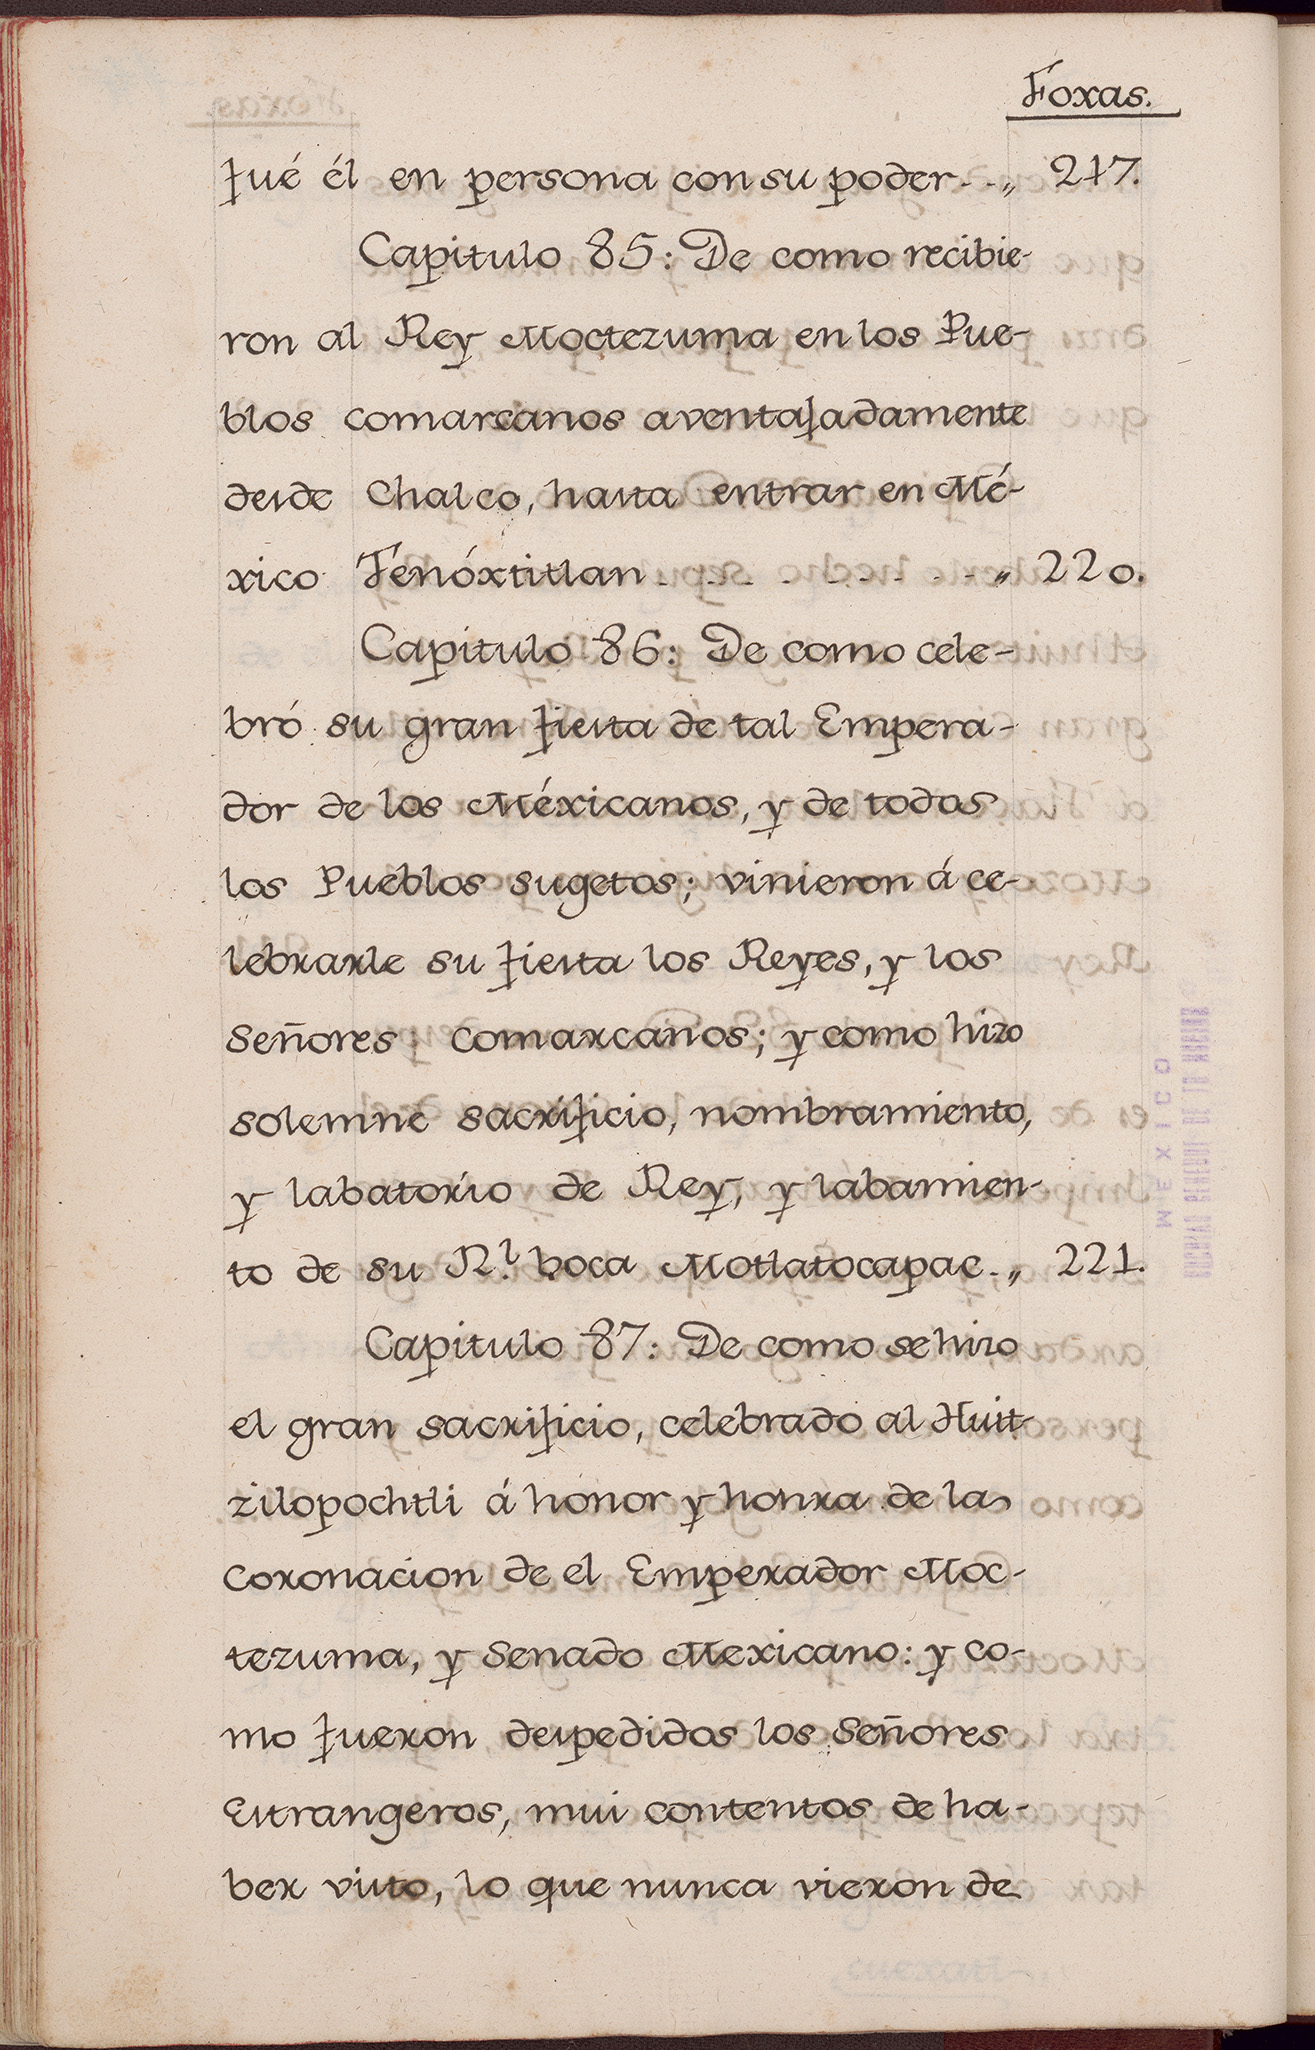 Foxas.
fué él en persona con su poder..„ 217.
Capitulo 85: De como recibie-
ron al Rey Moctezuma en los Pue-
blos comarcanos aventajadamente
desde Chalco, hasta entrar en Mé-
xico Tenóxtitlan . . . . . . . . . „ 220.
Capitulo 86: De como cele-
bró su gran fiesta de tal Empera-
dor de los Méxicanos, y de todos
los Pueblos sugetos; vinieron á ce-
lebrarle su fiesta los Reyes, y los
Señores comarcanos; y como hizo
solemne sacrificio, nombramiento,
y labatorio de Rey, y labamien-
to de su Rl. boca Motlatocapac.„ 221.
Capitulo 87: De como se hizo
el gran sacrificio, celebrado al Huit-
zilopochtli á honor y honra de la
Coronacion de el Emperador Moc-
tezuma, y Senado Mexicano: y co-
mo fueron despedidos los Señores
Estrangeros, mui contentos de ha-
ber visto, lo que nunca vieron de